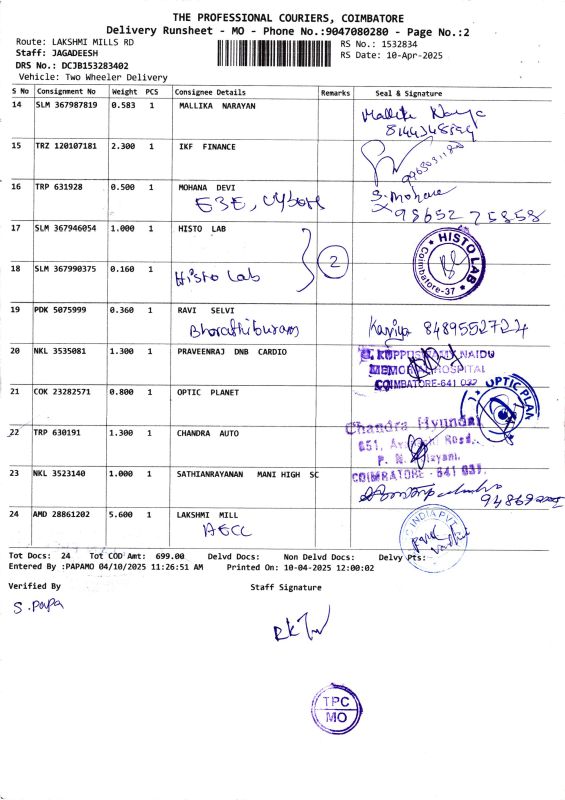 THE PROFESSIONAL COURIERS, COIMBATORE
Delivery Runsheet - MO - Phone No.:9047080280 - Page No.:2
Route: LAKSHMI MILLS RD
Staff: JAGADEESH
DRS No.: DCJB153283402
Vehicle: Two Wheeler Delivery
RS No.: 1532834
RS Date: 10-Apr-2025
S No Consignment No Weight PCS Consignee Details Remarks Seal & Signature
14 SLM 367987819 0.583 1 MALLIKA NARAYAN
Mallika
15 TRZ 120107181 2.300 1 IKF FINANCE
16 TRP 631928 0.500 1 MOHANA DEVI
S. Mohana
98652 75858
17 SLM 367946054 1.000 1 HISTO LAB
2
HISTO LAB
Coimbatore-37
18 SLM 367990375 0.160 1
Histo Lab
19 PDK 5075999 0.360 1 RAVI SELVI
Bharathipuram
8489552724
20 NKL 3535081 1.300 1 PRAVEENRAJ DNB CARDIO
G. KUPPUSWAMY NAIDU
MEMORIAL HOSPITAL
COIMBATORE-641 037
21 COK 23282571 0.800 1 OPTIC PLANET
OPTIC PLAN
22 TRP 630191 1.300 1 CHANDRA AUTO
Chandra Hyundai
Road.
COIMBATORE - 641 037.
23 NKL 3523140 1.000 1 SATHIANRAYANAN MANI HIGH SC
24 AMD 28861202 5.600 1 LAKSHMI MILL
AECC
INDIA PVT
Tot Docs: 24 Tot COD Amt: 699.00 Delvd Docs: Non Delvd Docs: Delvy Pts:
Entered By :PAPAMO 04/10/2025 11:26:51 AM Printed On: 10-04-2025 12:00:02
Verified By Staff Signature
S. Papa
TPC
MO